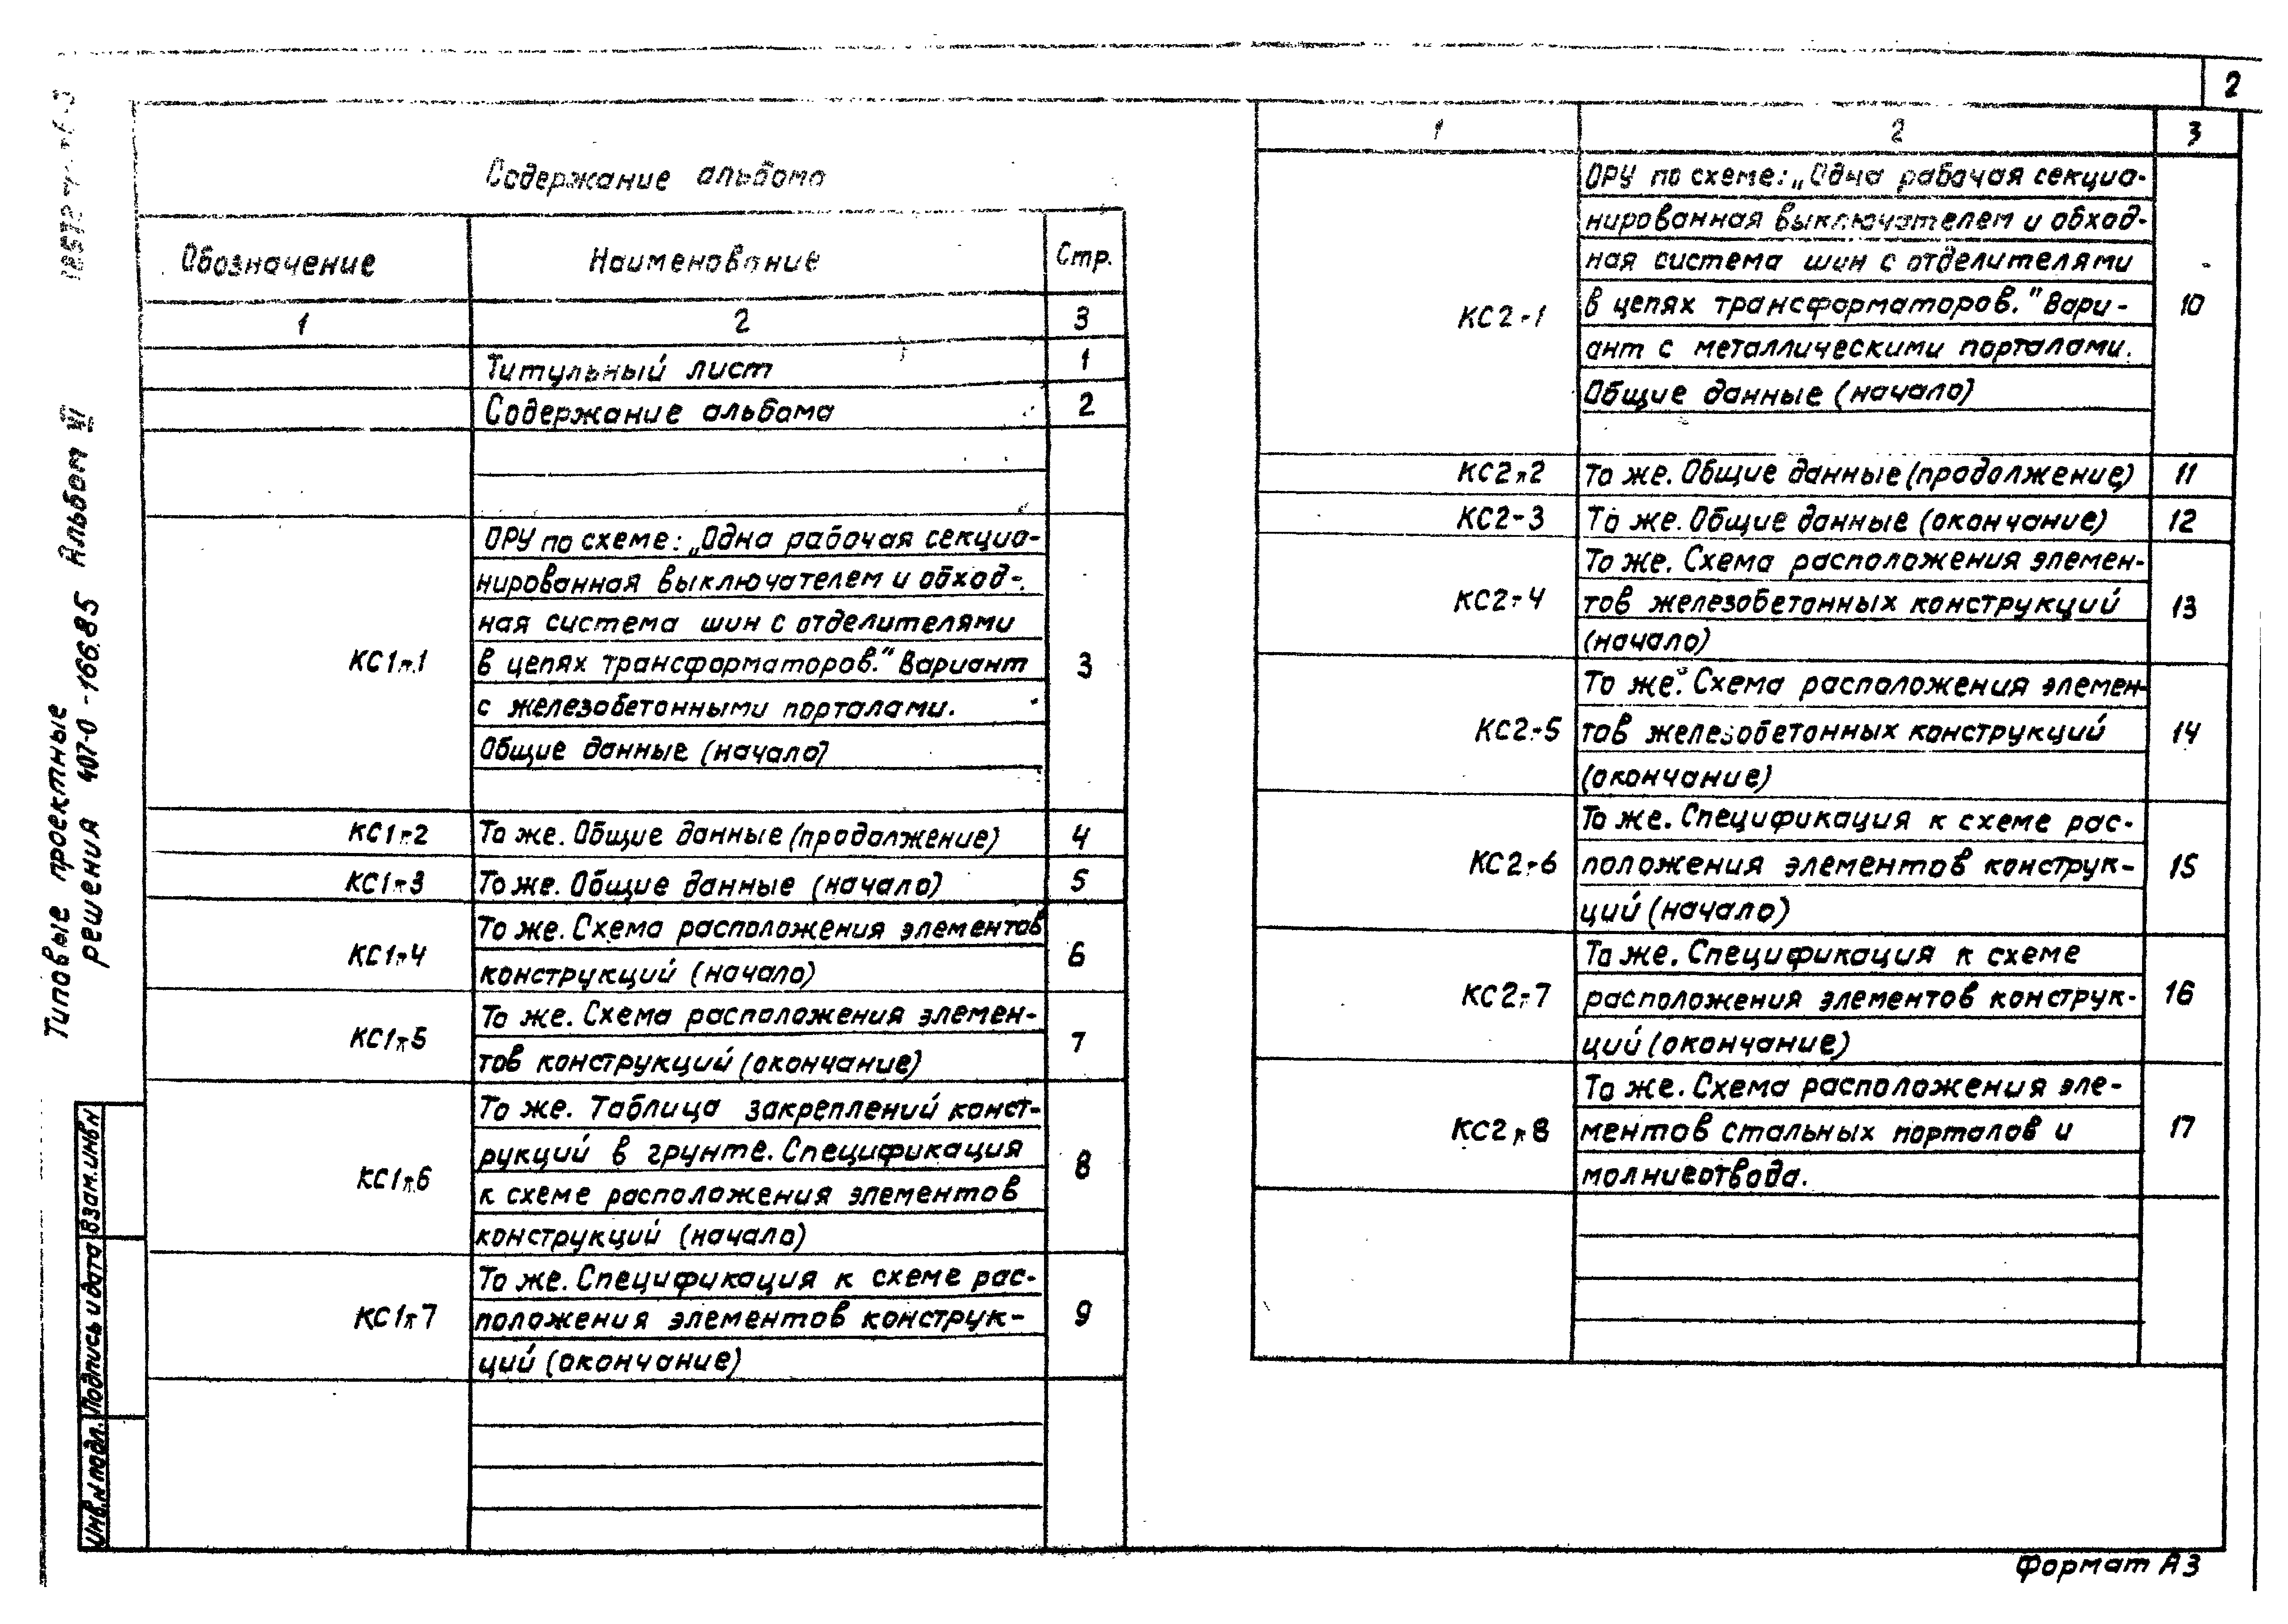 2
Содержание альбома
Обозначение Наименование Стр.
1 2 3
Титульный лист 1
Содержание альбома 2
ОРУ по схеме: „Одна рабочая секцио-
нированная выключателем и обход-
ная система шин с отделителями
КС1-1 в цепях трансформаторов." Вариант 3
с железобетонными порталами.
Общие данные (начало)
КС1-2 То же. Общие данные (продолжение) 4
КС1-3 То же. Общие данные (начало) 5
То же. Схема расположения элементов
КС1-4 конструкций (начало) 6
То же. Схема расположения элемен-
КС1-5 тов конструкций (окончание) 7
То же. Таблица закреплений конст-
рукций в грунте. Спецификация
КС1-6 к схеме расположения элементов 8
конструкций (начало)
То же. Спецификация к схеме рас-
КС1-7 положения элементов конструк- 9
ций (окончание)
1 2 3
ОРУ по схеме: „Одна рабочая секцио-
нированная выключателем и обход-
ная система шин с отделителями
КС2-1 в цепях трансформаторов." Вари- 10
ант с металлическими порталами.
Общие данные (начало)
КС2-2 То же. Общие данные (продолжение) 11
КС2-3 То же. Общие данные (окончание) 12
То же. Схема расположения элемен-
КС2-4 тов железобетонных конструкций 13
(начало)
То же. Схема расположения элемен-
КС2-5 тов железобетонных конструкций 14
(окончание)
То же. Спецификация к схеме рас-
КС2-6 положения элементов конструк- 15
ций (начало)
То же. Спецификация к схеме
КС2-7 расположения элементов конструк- 16
ций (окончание)
То же. Схема расположения эле-
КС2-8 ментов стальных порталов и 17
молниеотвода.
Типовые проектные
решения 407-0-166.85 Альбом VI
Взам.инв.N
Подпись и дата
Инв.N подл.
Формат А3